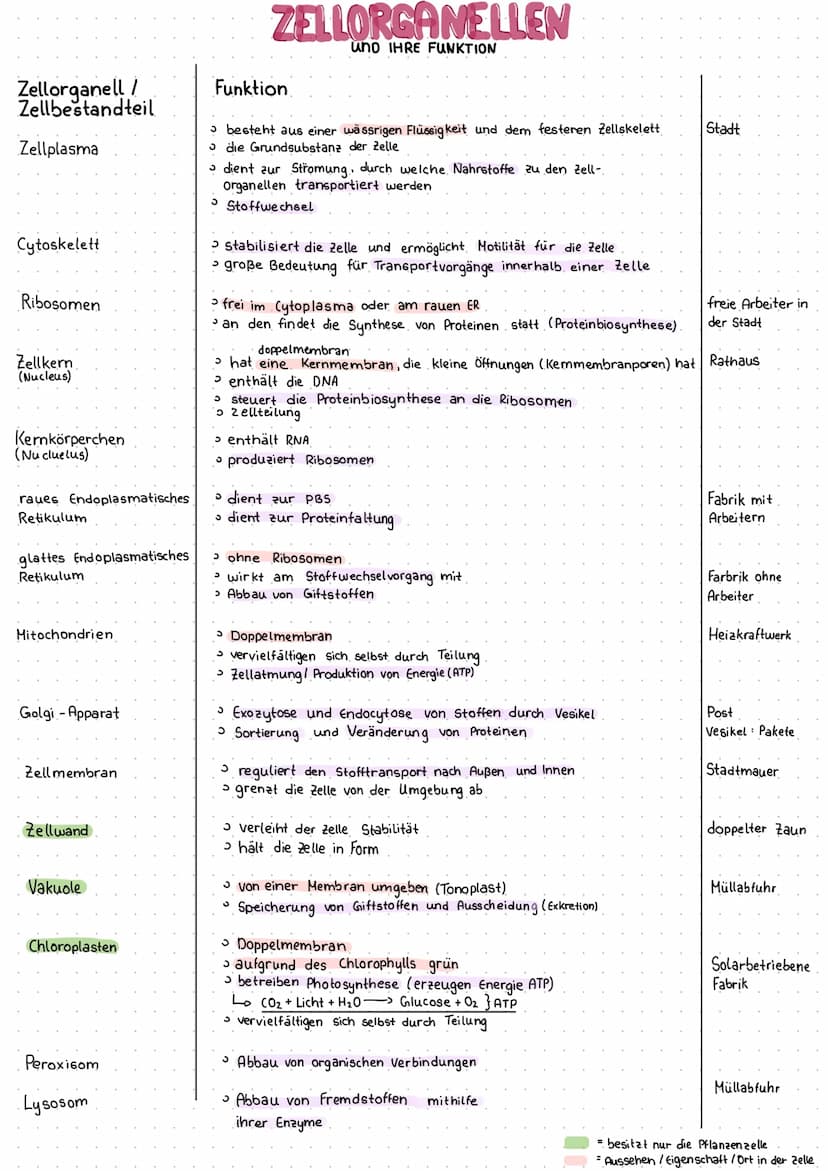 ZELLORGANELLEN
UND IHRE FUNKTION
Zellorganell /
Zellbestandteil
Funktion
Zellplasma
° besteht aus einer wässrigen Flüssigkeit und dem festeren Zellskelett
° die Grundsubstanz der Zelle
° dient zur Strömung, durch welche Nährstoffe zu den Zell-
organellen transportiert werden
° Stoffwechsel
Stadt
Cytoskelett
° stabilisiert die Zelle und ermöglicht Motilität für die Zelle
° große Bedeutung für Transportvorgänge innerhalb einer Zelle
Ribosomen
° frei im Cytoplasma oder am rauen ER
° an den findet die Synthese von Proteinen statt (Proteinbiosynthese)
freie Arbeiter in
der Stadt
Zellkern
(Nucleus)
doppelmembran
° hat eine Kernmembran, die kleine Öffnungen (Kernmembranporen) hat
° enthält die DNA
° steuert die Proteinbiosynthese an die Ribosomen
° Zellteilung
Rathaus
Kernkörperchen
(Nucluelus)
° enthält RNA
° produziert Ribosomen
raues Endoplasmatisches
Retikulum
° dient zur PBS
° dient zur Proteinfaltung
Fabrik mit
Arbeitern
glattes Endoplasmatisches
Retikulum
° ohne Ribosomen
° wirkt am Stoffwechselvorgang mit
° Abbau von Giftstoffen
Farbrik ohne
Arbeiter
Mitochondrien
° Doppelmembran
° vervielfältigen sich selbst durch Teilung
° Zellatmung/ Produktion von Energie (ATP)
Heizkraftwerk
Golgi - Apparat
° Exozytose und Endocytose von Stoffen durch Vesikel
° Sortierung und Veränderung von Proteinen
Post
Vesikel : Pakete
Zellmembran
° reguliert den Stofftransport nach Außen und Innen
° grenzt die Zelle von der Umgebung ab
Stadtmauer
Zellwand
° verleiht der Zelle Stabilität
° hält die Zelle in Form
doppelter Zaun
Vakuole
° von einer Membran umgeben (Tonoplast)
° Speicherung von Giftstoffen und Ausscheidung (Exkretion)
Müllabfuhr
Chloroplasten
° Doppelmembran
° aufgrund des Chlorophylls grün
° betreiben Photosynthese (erzeugen Energie ATP)
↳ CO₂ + Licht + H₂O → Glucose + O₂ } ATP
° vervielfältigen sich selbst durch Teilung
Solarbetriebene
Fabrik
Peroxisom
° Abbau von organischen Verbindungen
Lysosom
° Abbau von Fremdstoffen mithilfe
ihrer Enzyme
Müllabfuhr
= besitzt nur die Pflanzenzelle
= Aussehen / Eigenschaft / Ort in der Zelle